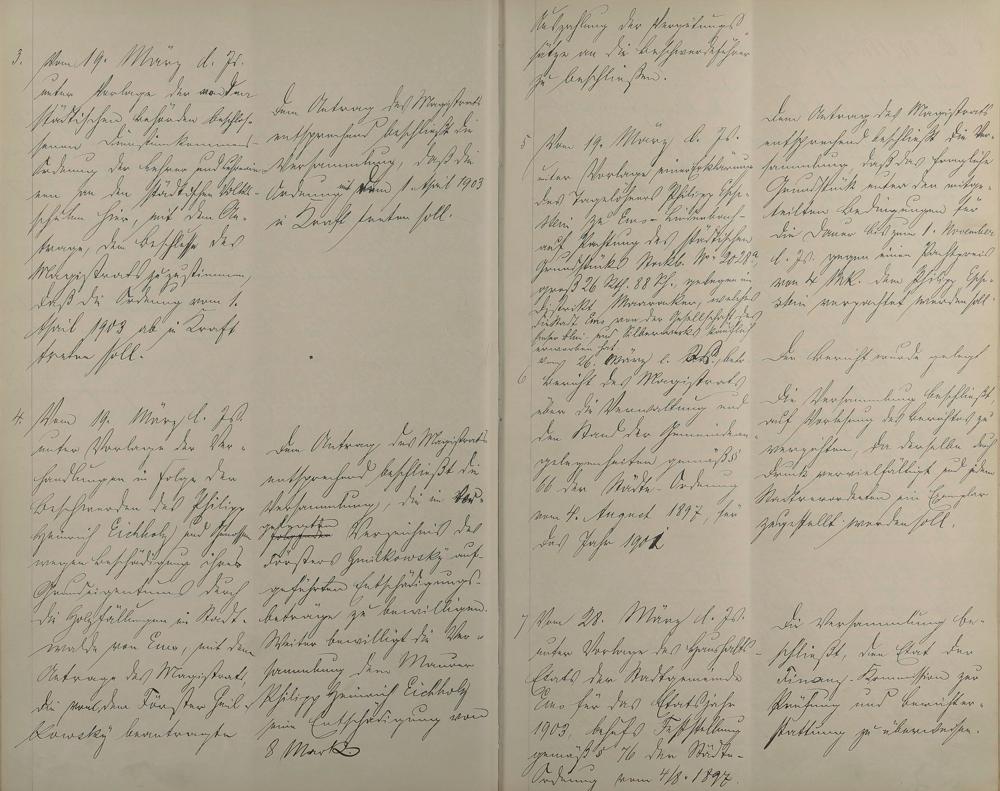 3.
Vom 19. März d. Js.
unter Vorlage der von den
städtischen Behörden beschlos-
senen Diensteinkommens-
Ordnung der Lehrer und Lehrerin-
nen an den städtischen Volks-
schulen hier, mit dem An-
trage, dem Beschlusse des
Magistrats zuzustimmen,
daß die Ordnung vom 1.
April 1903 ab in Kraft
treten soll.
Dem Antrag des Magistrats
entsprechend beschließt die
Versammlung, daß die
Ordnung mit dem 1. April 1903
in Kraft treten soll.
4.
Vom 19. März l. Js.
unter Vorlage der Ver-
handlungen in Folge der
Beschwerden des Philipp
Heinrich Eichholz und Genossen
wegen Beschädigung ihres
Grundeigentums durch
die Holzfällungen im Stadt-
walde von Ems, mit dem
Antrage des Magistrats,
die von dem Förster
beantragte
Dem Antrag des Magistrats
entsprechend beschließt die
Versammlung, die in
Verzeichnis des
Försters auf-
geführten Entschädigungs-
beträge zu bewilligen.
Weiter bewilligt die Ver-
sammlung dem Maurer
Philipp Heinrich Eichholz
eine Entschädigung von
8 Mark
Auszahlung der Vergütungs
sätze an die Beschwerdeführer
zu beschließen.
5
Vom 19. März l. Js.
unter Vorlage einer Erklärung
des Tagelöhners Philipp
zu Ems-
auf Pachtung des städtischen
Grundstücks Stockb. No. 2028a
groß 26 Rth. 88 Sch. gelegen im
Distrikt welches
die Stadt Ems von der Gesellschaft des
Emser Blei- und Silberwerks käuflich
erworben hat.
Dem Antrag des Magistrats
entsprechend beschließt die Ver-
sammlung, daß das fragliche
Grundstück unter den mitge-
teilten Bedingungen für
die Dauer bis zum 1. November
l. Js. gegen einen Pachtpreis
von 4 Mk. dem Philipp
verpachtet werden soll.
6
Vom 26. März l. Js., betr.
Bericht des Magistrats
über die Verwaltung und
den Stand der Gemeindean-
gelegenheiten gemäß §
66 der Städte-Ordnung
vom 4. August 1897, für
das Jahr 1902
Der Bericht wurde gelegt
Die Versammlung beschließt,
auf Verlesung des Berichtes zu
verzichten, da derselbe durch
Druck vervielfältigt und jedem
Stadtverordneten ein Exemplar
zugestellt werden soll.
7
Vom 28. März d. Js.
unter Vorlage des Haushalts-
Etats der Stadtgemeinde
Ems für das Etatsjahr
1903, behufs Feststellung
gemäß § 76 der Städte-
Ordnung vom 4/8. 1897.
Die Versammlung be-
schließt, den Etat der
Finanz-Kommission zur
Prüfung und Berichter-
stattung zu überweisen.